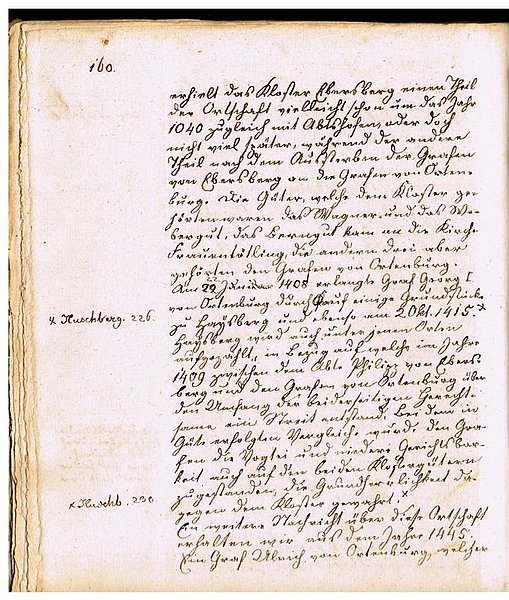 160.
erhielt das Kloster Ebersberg einen Theil
der Ortschaft vielleicht schon um das Jahr
1040 zugleich mit Abtshofen, oder doch
nicht viel später, während der andere
Theil nach dem Aussterben der Grafen
von Ebersberg an die Grafen von Orten-
burg. Die Güter, welche dem Kloster ge-
hörten waren das Wagner- und das We-
bergut, das Berngut kam an die Kirche
Frauentötling, die andern drei aber
gehörten den Grafen von Ortenburg.
Am 22 Januar 1408 erlangte Graf Georg I.
von Ortenburg durch Kauf einige Grundstücke
zu Haysberg und ebenso am 2 Okt. 1415. x
x Huschberg. 226.
Haysberg wird auch unter jenen Orten
aufgezählt, in Bezug auf welche im Jahre
1499 zwischen dem Abte Philipp von Ebers-
berg und den Grafen von Ortenburg über
den Umfang der beiderseitigen Gerecht-
same ein Streit entstand. Bei dem in
Güte erfolgten Vergleich wurde den Gra-
fen die Vogtei und niedere Gerichtsbar-
keit auch auf den beiden Klostergütern
zugestanden, die Grundherrlichkeit da-
gegen dem Kloster gewahrt. x
x Huschb. 290.
Ein weitere Nachricht über diese Ortschaft
erhalten wir aus dem Jahre 1445.
Ein Graf Ulrich von Ortenburg, welcher